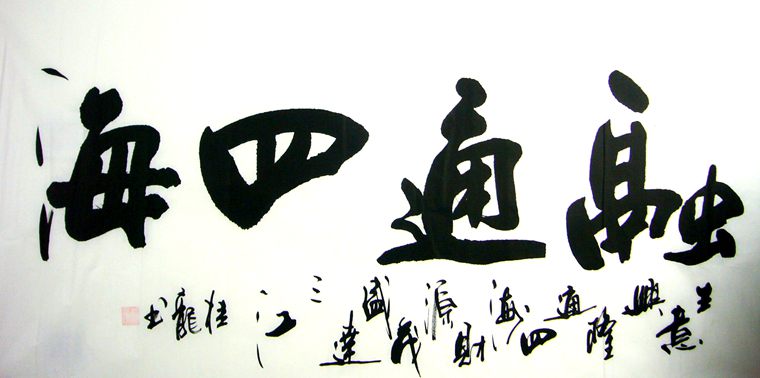 融通四海
生意興隆通四海財源茂盛達三江
桂龍书